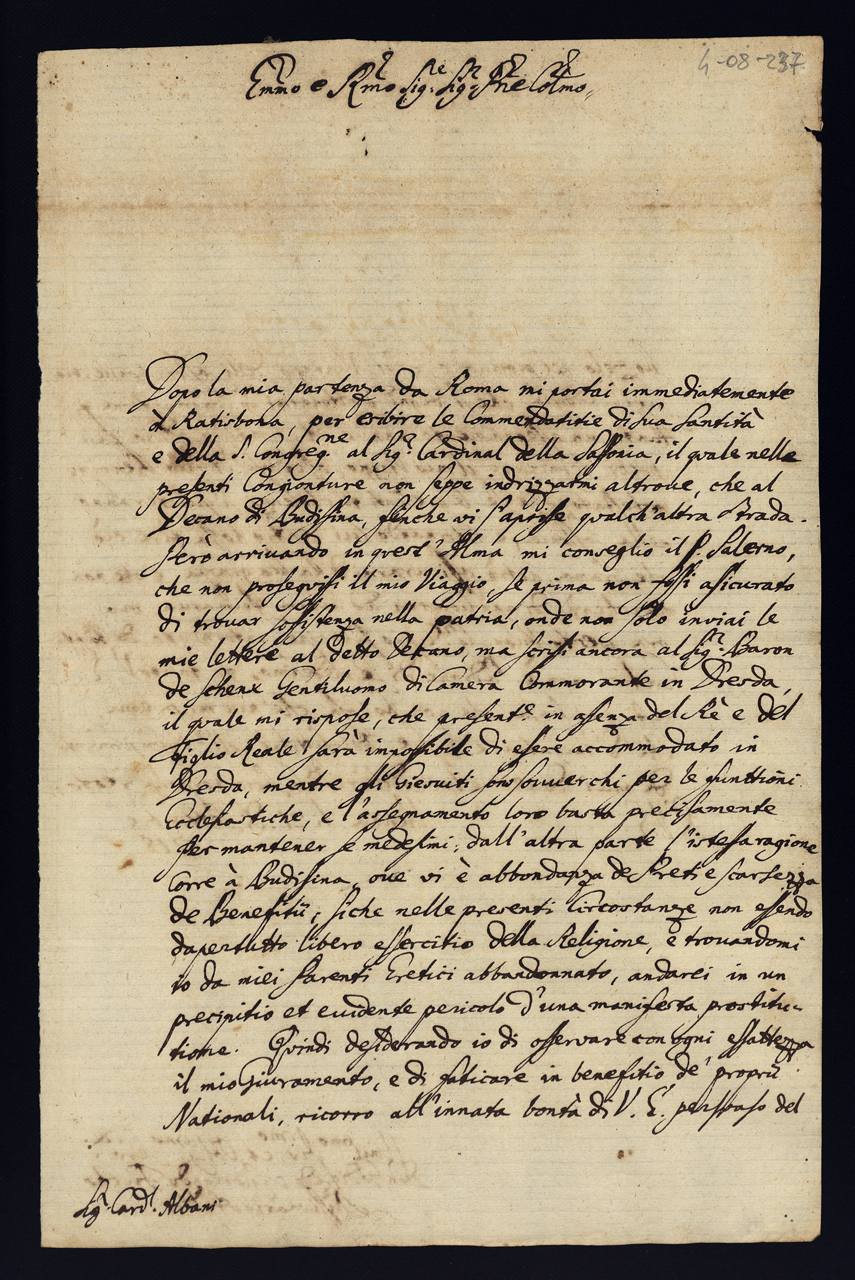 4-08-237
Emmo e Rmo Sigre Sigr Prne Colmo
Dopo la mia partenza da Roma mi portai immediatemente
à Ratisbona, per esibire le Commendatitie di Sua Santità
e della S. Congregne al Sigr Cardinal della Sassonia, il quale nelle
presenti Congionture non seppe indrizzarmi altroue, che al
Decano di Budissina, finche vi s'aprisse qualch'altra strada.
Però arrivando in quest'Alma mi conseglio il P. Salerno,
che non proseguissi il mio Viaggio, se prima non fossi asicurato
di trouar sossistenza nella patria, onde non solo inviai le
mie lettere al detto Decano, ma scrissi ancora al Sigr Baron
de Schenx Gentiluomo di Camera Commorante in Dresda,
il quale mi rispose, che presente in assenza del Rè e del
Figlio Reale sarà impossibile di essere accommodato in
Dresda, mentre gli Giesuiti sono souuerchi per le funttioni
Ecclesiastiche, e l'assegnamento loro basta precisamente
per mantener se medesimi; dall'altra parte l'istessa ragione
corre à Budissina, oue vi è abbondanza de Preti e scarsezza
de Benefitÿ; siche nelle presenti Circostanze non essendo
dapertutto libero essercitio della Religione, e trouandomi
io da miei Parenti Eretici abbandonnato, andarei in un
precipitio et euidente pericolo d'una manifesta prostitu-
tione. Quindi desiderando io di osseruare con ogni essattezza
il mio Giuramento, e di faticare in benefitio de' proprÿ
Nationali, ricorro all'innata bontà di V. E. perssuaso del
Sigr Cardl. Albani